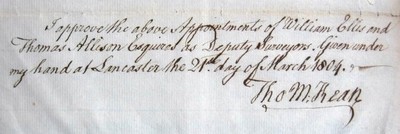 I approve the above Appointments of William Ellis and
Thomas Allison Esquires as Deputy Surveyors. Given under
my hand at Lancaster the 21st day of March 1804.
Tho M:Kean